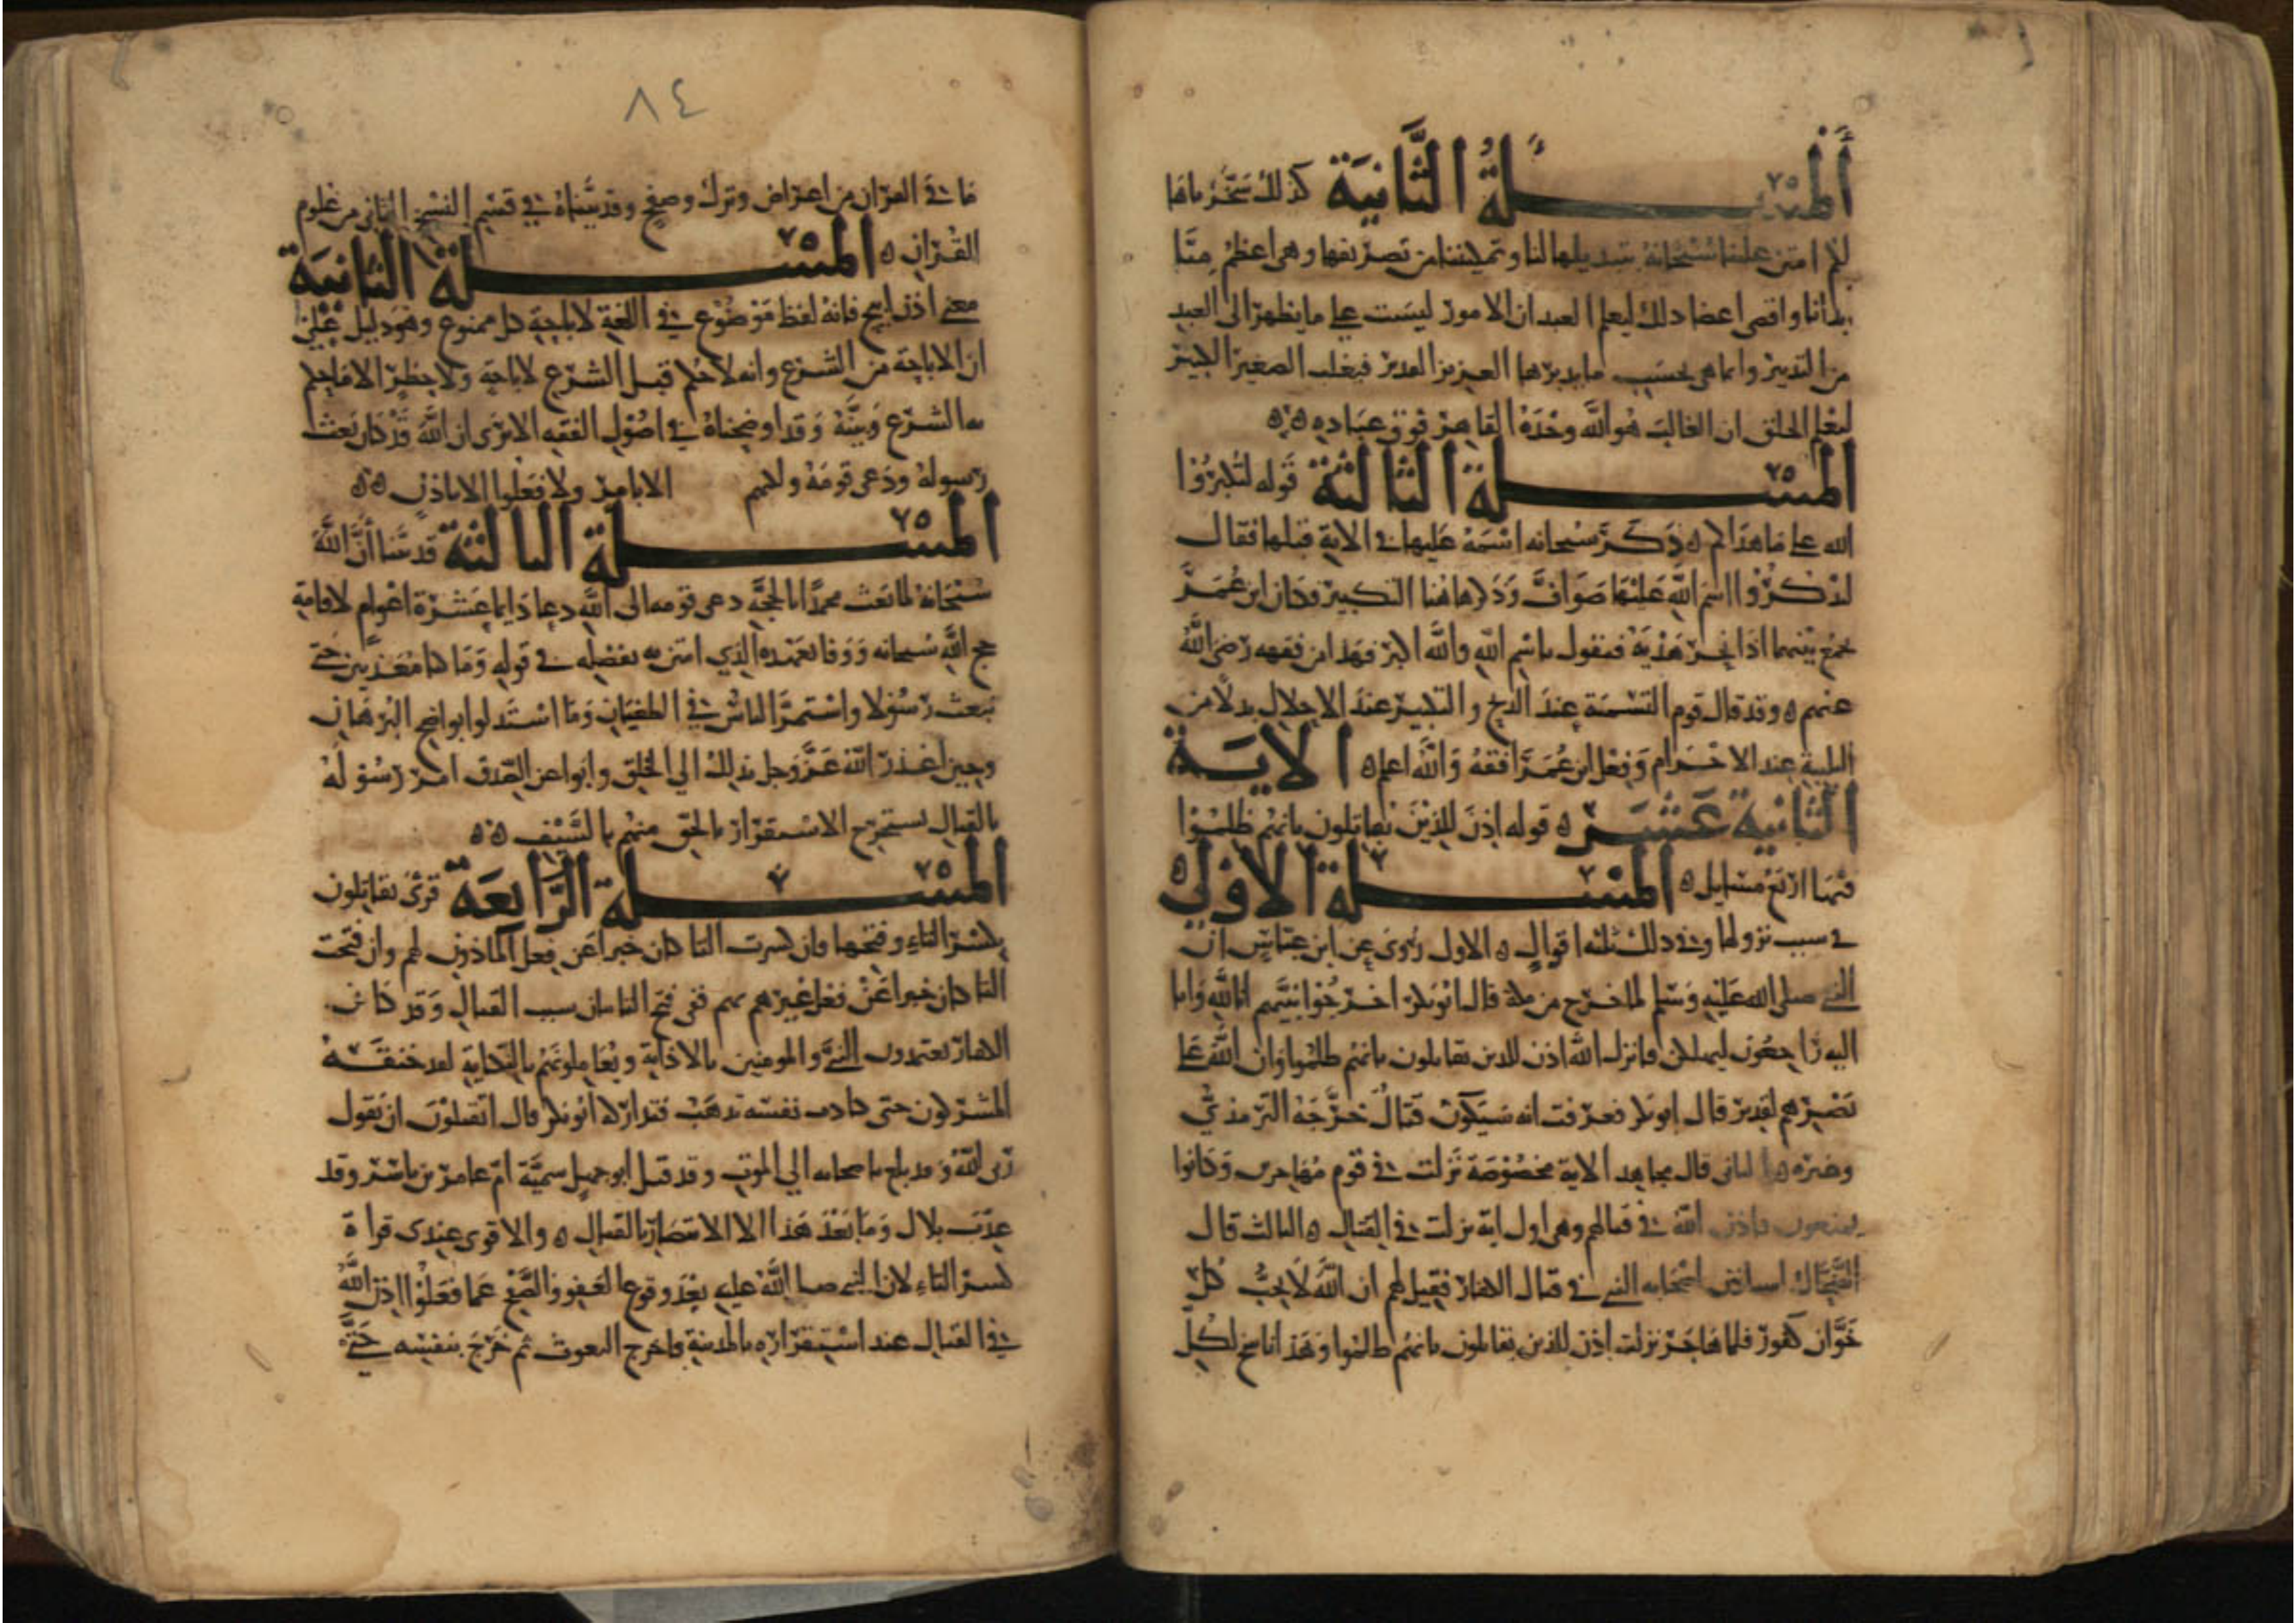 المسئلة الثانية كذلك سخرناها
لكم امتن علينا سبحانه بتذليلها لنا وتمكيننا من تصريفها وهي اعظم منا
ابدانا واقوى اعضا ذلك ليعلم العبد ان الامور ليست على ما يظهر الى العبد
من التدبير وانما هي بحسب ما يدبرها العزيز القدير فيغلب الصغير الكبير
ليعلم الخلق ان الغالب هو الله وحده القاهر فوق عباده ه ه
المسئلة الثالثة قوله لتكبروا
الله على ما هداكم ه ذكر سبحانه اسمه عليها في الاية قبلها فقال
اذكروا اسم الله عليها صواف وذكر هاهنا التكبير وكان ابن عمر
يجمع بينهما اذا نحر هديه فيقول باسم الله والله اكبر وهذا من فقهه رضي الله
عنهم ه وقد قال قوم التسمية عند الذبح والتكبير عند الاحلال بدلا من
التلبية عند الاحرام وفعل ابن عمر افقه والله اعلم ه الاية
الثانية عشر ه قوله اذن للذين يقاتلون بانهم ظلموا
فيها اربع مسايل ه المسئلة الاولى
في سبب نزولها وفي ذلك ثلثة اقوال ه الاول روي عن ابن عباس ان
النبي صلى الله عليه وسلم لما خرج من مكة قال ابو بكر اخرجوا نبيهم انا لله وانا
اليه راجعون ليهلكن فانزل الله اذن للذين يقاتلون بانهم ظلموا وان الله على
نصرهم لقدير قال ابو بكر فعرفت انه سيكون قتال خرجه الترمذي
وغيره ه الثاني قال مجاهد الاية مخصوصة نزلت في قوم مهاجرين وكانوا
يمنعون فاذن الله في قتالهم وهي اول اية نزلت في القتال ه الثالث قال
الضحاك استاذن اصحابه النبي في قتال الكفار فقيل لهم ان الله لا يحب كل
خوان كفور فلما هاجر نزلت اذن للذين يقاتلون بانهم ظلموا وهذا ناسخ لكل
٨٤
ما في القران من اعراض وترك وصفح وقد بيناه في قسم النسخ الثاني من علوم
القران ه المسئلة الثانية
معنى اذن ابيح فانه لفظ موضوع في اللغة لاباحة كل ممنوع وهو دليل على
ان الاباحة من الشرع وانه لا حكم قبل الشرع لا اباحة ولا حظرا الا ما حكم
به الشرع وبينه وقد اوضحناه في اصول الفقه الا ترى ان الله قد كان بعث
رسوله ودعى قومه ولكنهم الا بامر ولا فعلوا الا باذن ه ه
المسئلة الثالثة قد بينا أن الله
سبحانه لما بعث محمدا بالحجة دعى قومه الى الله دعا دايما عشرة اعوام لاقامة
حجة الله سبحانه ووفا بعهده الذي امتن به بفضله في قوله وما كنا معذبين حتى
نبعث رسولا واستمر الناس في الطغيان وما استدلوا بواضح البرهان
وحين اعذر الله عز وجل بذلك الي الخلق وابوا عن الصدق امر رسوله
بالقتال يستخرج الاستقرار بالحق منهم بالسيف ه ه
المسئلة الرابعة قرئ يقاتلون
بكسر التاء وفتحها فان كسرت التا كان خبرا عن فعل الماذون لهم وان فتحت
التا كان خبرا عن فعل غيرهم بهم ففي فتح التا بيان سبب القتال وقد كان
الكفار يعتمدون النبي والمومنين بالاذاية ويعاملونهم بالنكاية لقد خنقه
المشركون حتى كادت نفسه تذهب فتداركه ابو بكر قال اتقتلون ان يقول
ربي الله وقد بلغ باصحابه الي الموت وقد قتل ابو جهل سمية ام عامر بن ياسر وقد
عذب بلال وما بعد هذا الا الانتصار بالقتال ه والاقوى عندي قراة
كسر التاء لان النبي صلى الله عليه بعد وقوع العفو والصفح عما فعلوا اذن الله
في القتال عند استقراره بالمدينة فاخرج البعوث ثم خرج بنفسه حتى